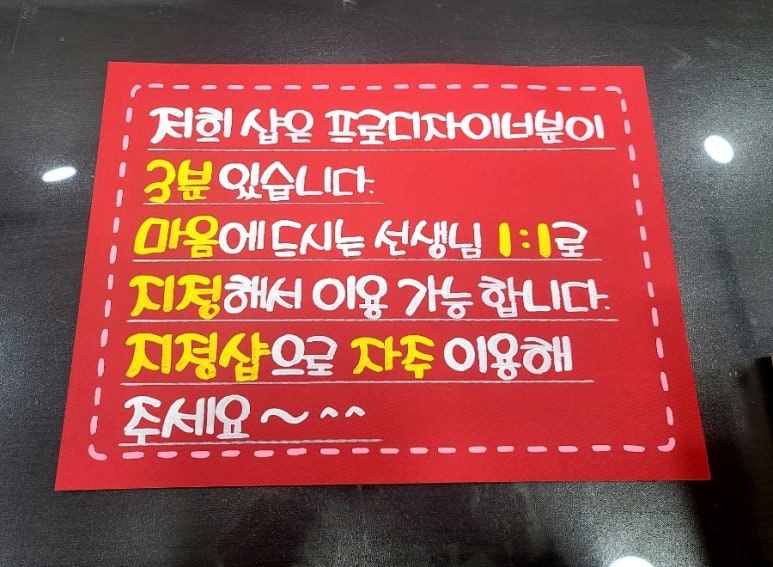 저희 샵은 프로디자이너분이
3분 있습니다.
마음에 드시는 선생님 1:1로
지정해서 이용 가능 합니다.
지정샵으로 자주 이용해
주세요~ ^^